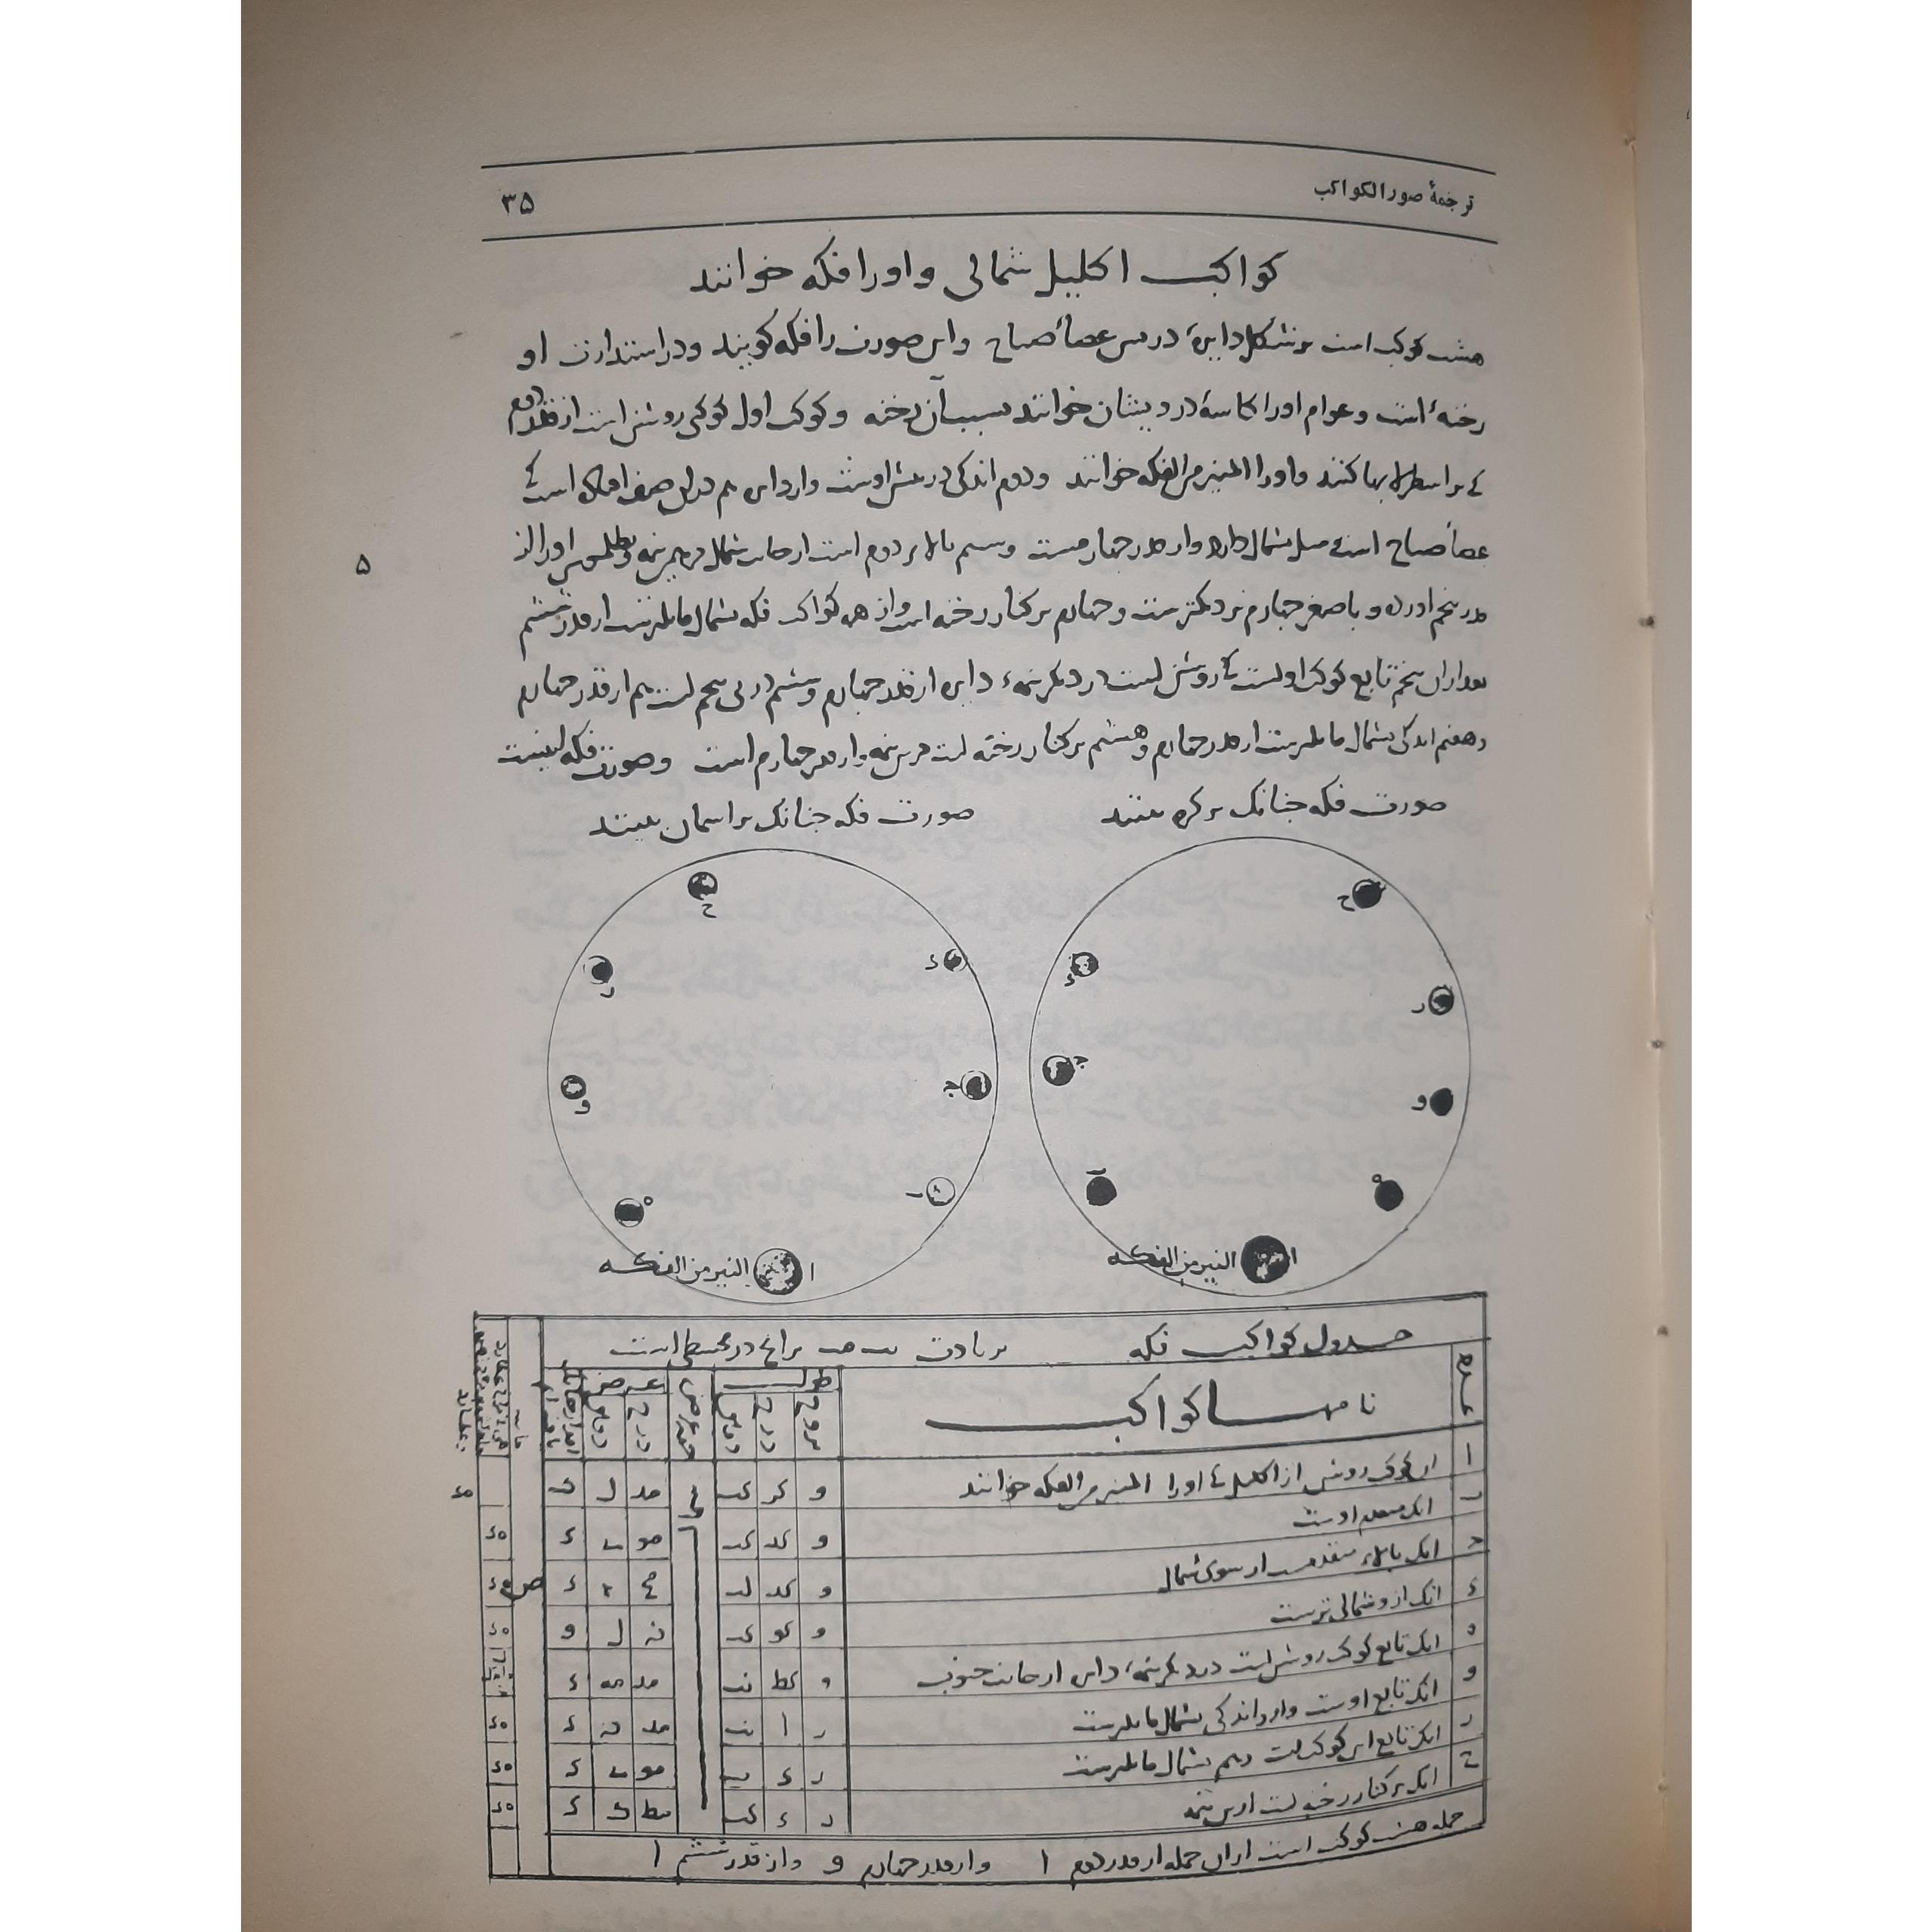 ترجمهٔ صور الکواکب
۳۵
کواکب اکلیل شمالی و او را فکه خوانند
هشت کوکب است بر شکل دایرهٔ در پس عصاٴ صیاح و این صورت را فکه کویند و در استدارت او
رخنهٔ است و عوام او را کاسهٔ درویشان خوانند بسبب آن رخنه و کوکب اول کوکبی روشن است از قدر دوم
کے بر اسطرلابها کنند و او را المنیر من الفکه خوانند و دوم اندکی در پیش اوست و از دایره هم در ان صف اول است کے
۵
عصاٴ صیاح است میل بشمال دارد و از قدر چهارمست و سیم بالای دوم است از جانب شمال در همین نیمه و بطلمیوس او را از
قدر پنجم اورده و باصغر چهارم نزدیکترست و چهارم بر کنار رخنه است و از همه کواکب فکه بشمال مایلترست از قدر ششم
بعد از ان پنجم تابع کوکب اولست کے روشن است در دیکر نیمهٔ دایره از قدر چهارم و ششم در پی پنجم است هم از قدر چهارم
و هفتم اندکی بشمال مایلترست از قدر چهارم و هشتم بر کنار رخنه است درین نیمه و از قدر چهارم است و صورت فکه اینست
صورت فکه چنانک بر کره بینند
صورت فکه چنانک بر اسمان بینند
ح
ء
ر
ج
و
ه
ا النیر من الفکه
ح
ء
ر
ج
و
ه
ا النیر من الفکه
جدول کواکب فکه بزیادت بر انچ در مجسطی است
عدد
نامهاٴ کواکب
طول
بروج
درج
دقایق
جهة عرض
عرض
درج
دقایق
ا ان کوکب روشن از اکلیل کے او را المنیر من الفکه خوانند و کر کب مد ل ب
ب انک متقدم اوست و کد کب مو ی ء
ج انک بالای متقدمست از سوی شمال و کد لب مح ء
ء انک ازو شمالی ترست و کو کب نه ل و
ه انک تابع کوکب روشن است در دیکر نیمهٔ دایره از جانب جنوب و کط نب مد مه ء
و انک تابع اوست و ازو اندکی بشمال مایلترست ر ا نب مد نه ء
ر انک تابع این کوکب است و هم بشمال مایلترست ر ء یب مو ی ء
ح انک بر کنار رخنه است ازین نیمه ر ء کب مط ک ء
جمله هشت کوکب است از ان جمله از قدر دوم ا و از قدر چهارم و و از قدر ششم ا